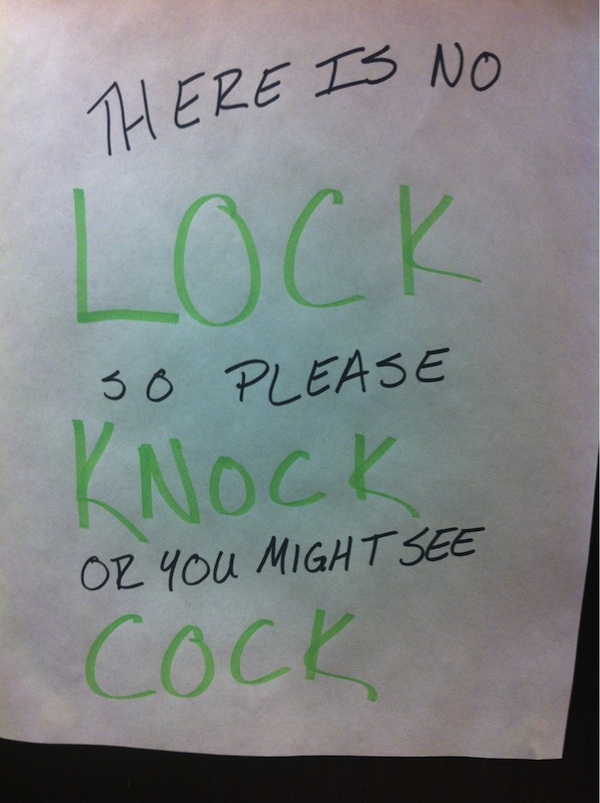 THERE IS NO
LOCK
SO PLEASE
KNOCK
OR YOU MIGHT SEE
COCK